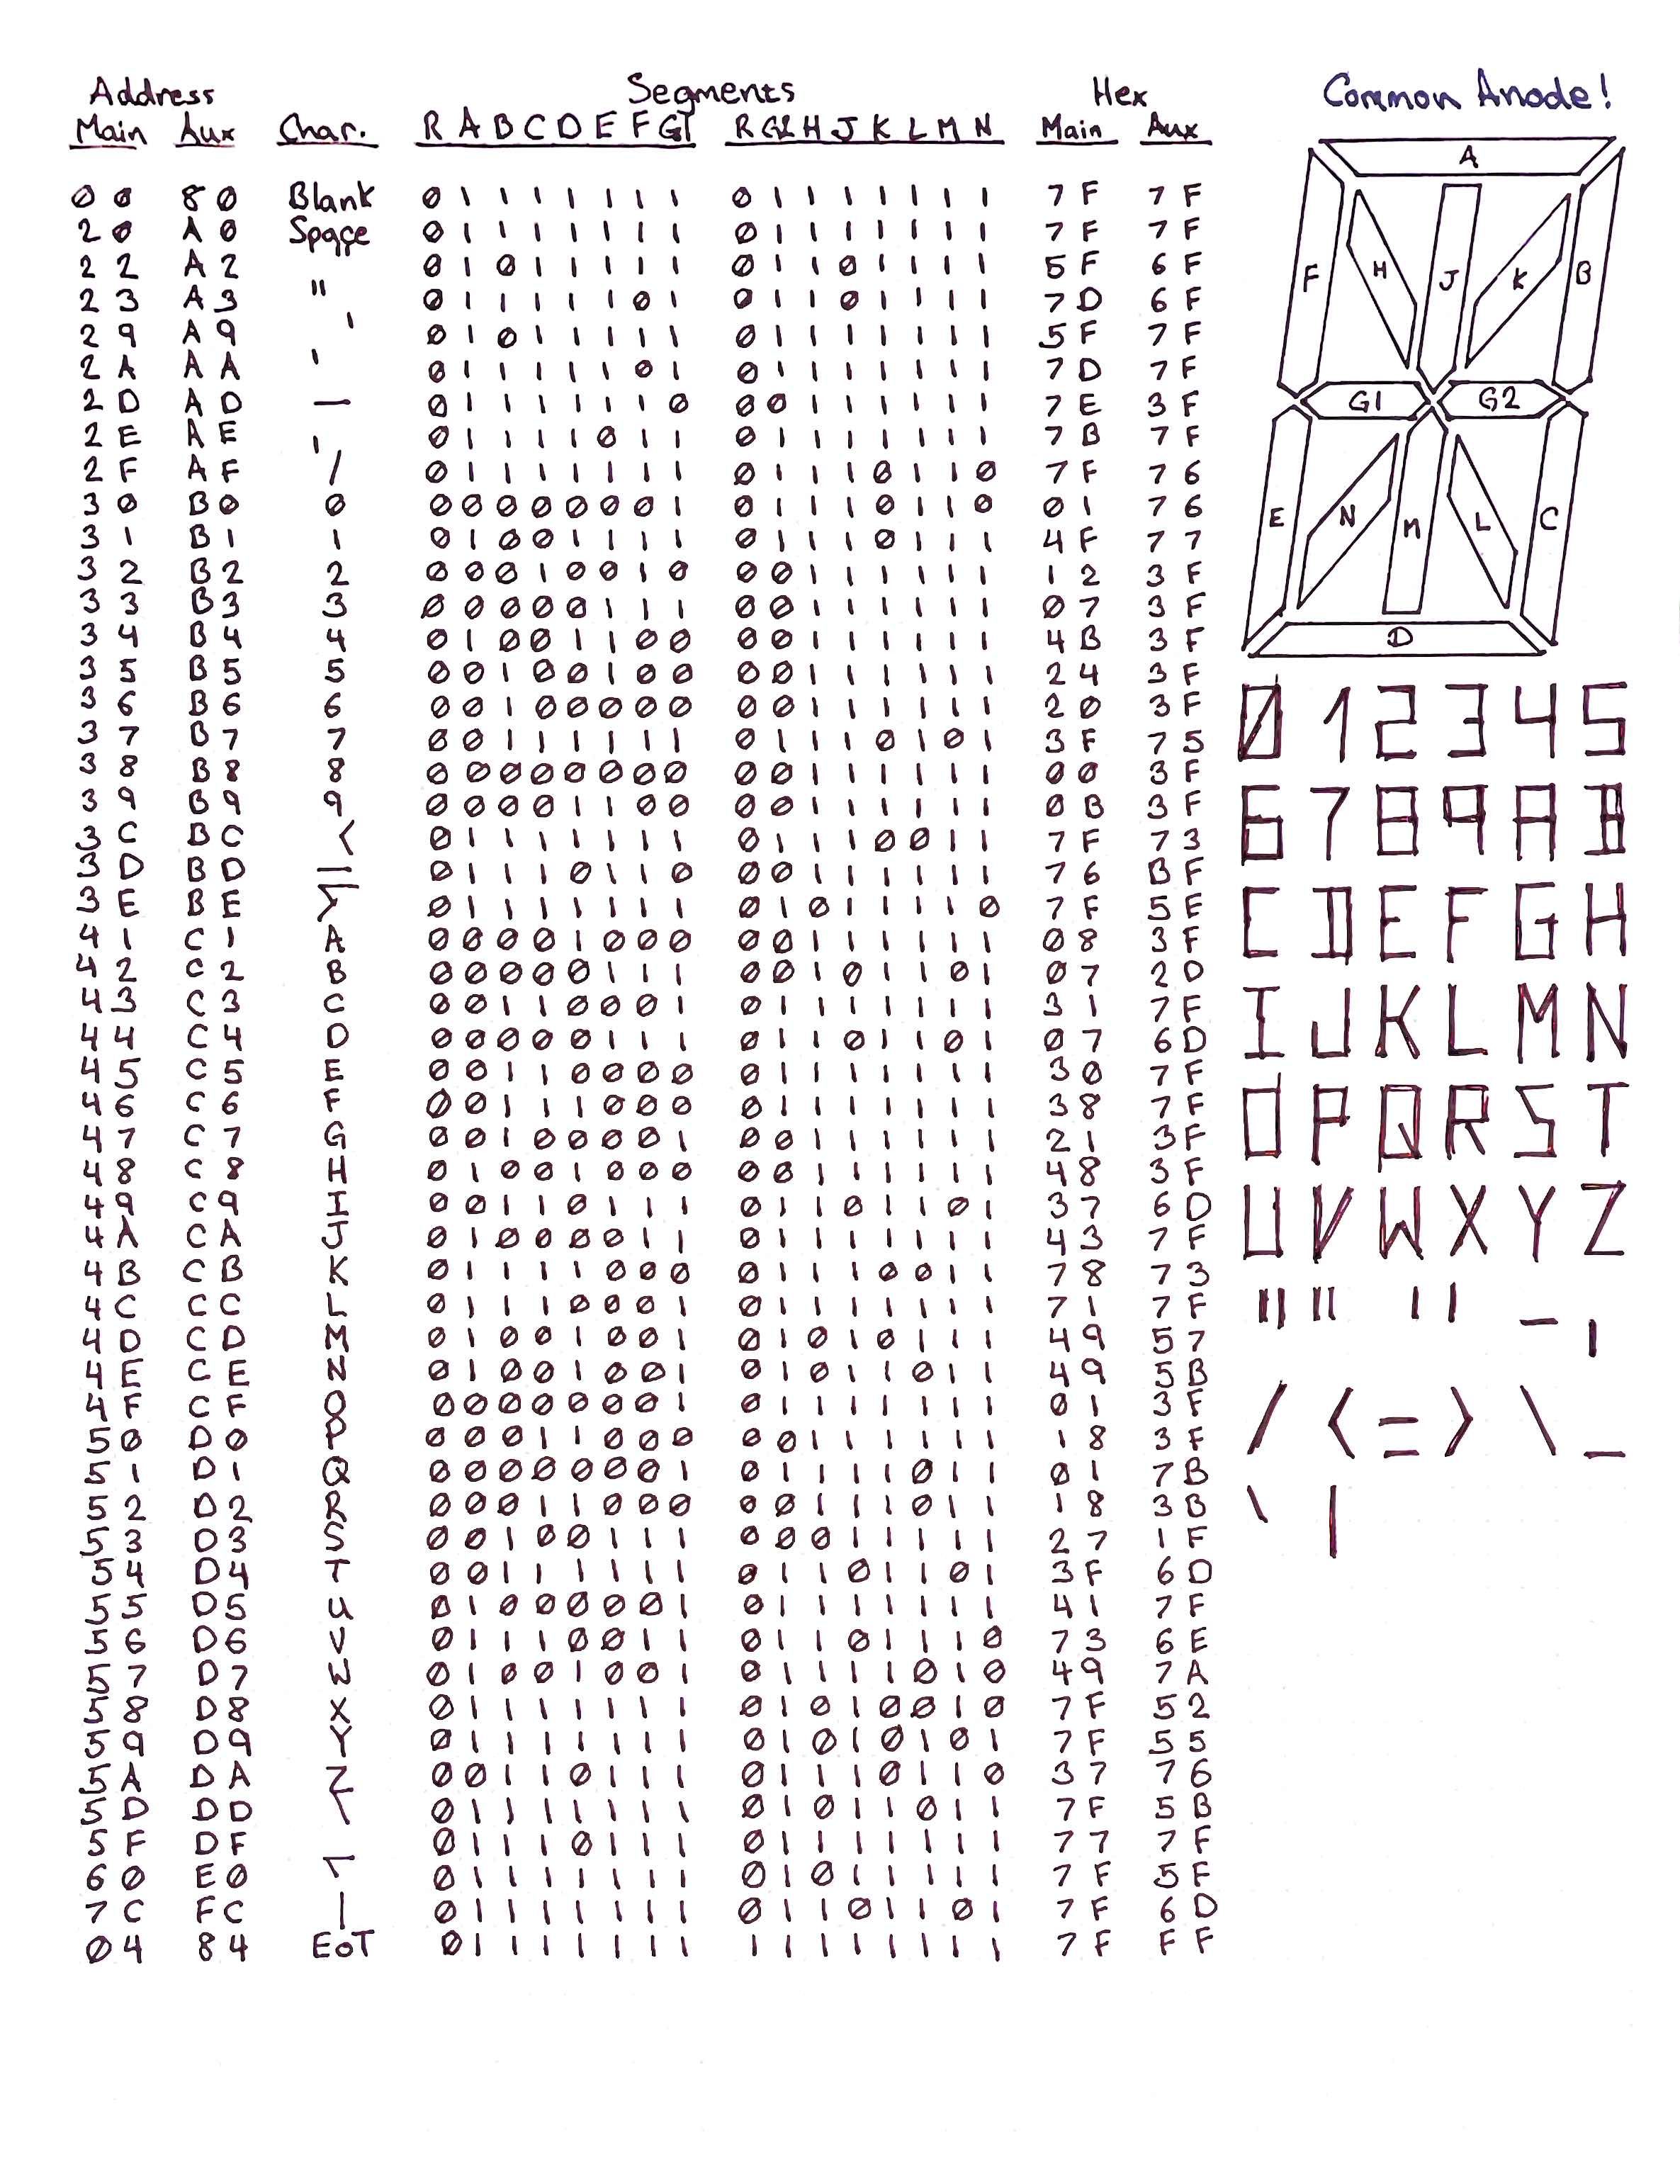 Address Segments Hex Common Anode!
Main Aux Char. R A B C D E F G1 R G2 H J K L M N Main Aux
00 80 Blank 0 1 1 1 1 1 1 1 0 1 1 1 1 1 1 1 7F 7F
20 A0 Space 0 1 1 1 1 1 1 1 0 1 1 1 1 1 1 1 7F 7F
22 A2 " 0 1 0 1 1 1 1 1 0 1 1 0 1 1 1 1 5F 6F
23 A3 " 0 1 1 1 1 1 0 1 0 1 1 0 1 1 1 1 7D 6F
29 A9 ' 0 1 0 1 1 1 1 1 0 1 1 1 1 1 1 1 5F 7F
2A AA ' 0 1 1 1 1 1 0 1 0 1 1 1 1 1 1 1 7D 7F
2D AD — 0 1 1 1 1 1 1 0 0 0 1 1 1 1 1 1 7E 3F
2E AE , 0 1 1 1 1 0 1 1 0 1 1 1 1 1 1 1 7B 7F
2F AF / 0 1 1 1 1 1 1 1 0 1 1 1 0 1 1 0 7F 76
30 B0 0 0 0 0 0 0 0 0 1 0 1 1 1 0 1 1 0 01 76
31 B1 1 0 1 0 0 1 1 1 1 0 1 1 1 0 1 1 1 4F 77
32 B2 2 0 0 0 1 0 0 1 0 0 0 1 1 1 1 1 1 12 3F
33 B3 3 0 0 0 0 0 1 1 1 0 0 1 1 1 1 1 1 07 3F
34 B4 4 0 1 0 0 1 1 0 0 0 0 1 1 1 1 1 1 4B 3F
35 B5 5 0 0 1 0 0 1 0 0 0 0 1 1 1 1 1 1 24 3F
36 B6 6 0 0 1 0 0 0 0 0 0 0 1 1 1 1 1 1 20 3F
37 B7 7 0 0 1 1 1 1 1 1 0 1 1 1 0 1 0 1 3F 75
38 B8 8 0 0 0 0 0 0 0 0 0 0 1 1 1 1 1 1 00 3F
39 B9 9 0 0 0 0 1 1 0 0 0 0 1 1 1 1 1 1 0B 3F
3C BC < 0 1 1 1 1 1 1 1 0 1 1 1 0 0 1 1 7F 73
3D BD = 0 1 1 1 0 1 1 0 0 0 1 1 1 1 1 1 76 BF
3E BE > 0 1 1 1 1 1 1 1 0 1 0 1 1 1 1 0 7F 5E
41 C1 A 0 0 0 0 1 0 0 0 0 0 1 1 1 1 1 1 08 3F
42 C2 B 0 0 0 0 0 1 1 1 0 0 1 0 1 1 0 1 07 2D
43 C3 C 0 0 1 1 0 0 0 1 0 1 1 1 1 1 1 1 31 7F
44 C4 D 0 0 0 0 0 1 1 1 0 1 1 0 1 1 0 1 07 6D
45 C5 E 0 0 1 1 0 0 0 0 0 1 1 1 1 1 1 1 30 7F
46 C6 F 0 0 1 1 1 0 0 0 0 1 1 1 1 1 1 1 38 7F
47 C7 G 0 0 1 0 0 0 0 1 0 0 1 1 1 1 1 1 21 3F
48 C8 H 0 1 0 0 1 0 0 0 0 0 1 1 1 1 1 1 48 3F
49 C9 I 0 0 1 1 0 1 1 1 0 1 1 0 1 1 0 1 37 6D
4A CA J 0 1 0 0 0 0 1 1 0 1 1 1 1 1 1 1 43 7F
4B CB K 0 1 1 1 1 0 0 0 0 1 1 1 0 0 1 1 78 73
4C CC L 0 1 1 1 0 0 0 1 0 1 1 1 1 1 1 1 71 7F
4D CD M 0 1 0 0 1 0 0 1 0 1 0 1 0 1 1 1 49 57
4E CE N 0 1 0 0 1 0 0 1 0 1 0 1 1 0 1 1 49 5B
4F CF O 0 0 0 0 0 0 0 1 0 1 1 1 1 1 1 1 01 3F
50 D0 P 0 0 0 1 1 0 0 0 0 0 1 1 1 1 1 1 18 3F
51 D1 Q 0 0 0 0 0 0 0 1 0 1 1 1 1 0 1 1 01 7B
52 D2 R 0 0 0 1 1 0 0 0 0 0 1 1 1 0 1 1 18 3B
53 D3 S 0 0 1 0 0 1 1 1 0 0 0 1 1 1 1 1 27 1F
54 D4 T 0 0 1 1 1 1 1 1 0 1 1 0 1 1 0 1 3F 6D
55 D5 U 0 1 0 0 0 0 0 1 0 1 1 1 1 1 1 1 41 7F
56 D6 V 0 1 1 1 0 0 1 1 0 1 1 0 1 1 1 0 73 6E
57 D7 W 0 1 0 0 1 0 0 1 0 1 1 1 1 0 1 0 49 7A
58 D8 X 0 1 1 1 1 1 1 1 0 1 0 1 0 0 1 0 7F 52
59 D9 Y 0 1 1 1 1 1 1 1 0 1 0 1 0 1 0 1 7F 55
5A DA Z 0 0 1 1 0 1 1 1 0 1 1 1 0 1 1 0 37 76
5D DD \ 0 1 1 1 1 1 1 1 0 1 0 1 1 0 1 1 7F 5B
5F DF _ 0 1 1 1 0 1 1 1 0 1 1 1 1 1 1 1 77 7F
60 E0 ` 0 1 1 1 1 1 1 1 0 1 0 1 1 1 1 1 7F 5F
7C FC | 0 1 1 1 1 1 1 1 0 1 1 0 1 1 0 1 7F 6D
04 84 EoT 0 1 1 1 1 1 1 1 1 1 1 1 1 1 1 1 7F FF
A
F H J K B
G1 G2
E N M L C
D
0 1 2 3 4 5
6 7 8 9 A B
C D E F G H
I J K L M N
O P Q R S T
U V W X Y Z
" " ' ' — ,
/ < = > \ _
` |